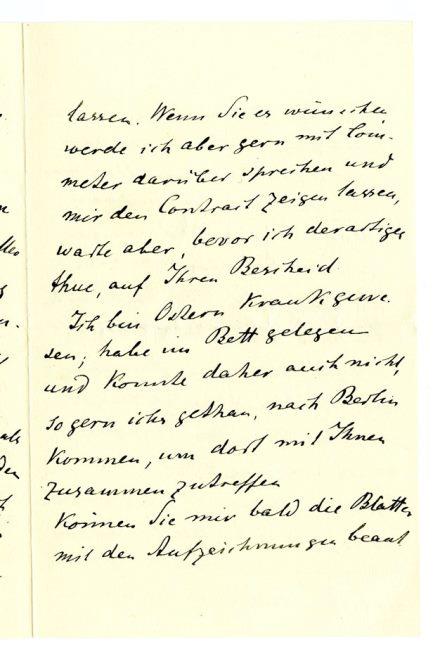 lassen. Wenn Sie es wünschen
werde ich aber gern mit
meter darüber sprechen und
mir den Contract zeigen lassen,
warte aber, bevor ich derartiges
thue, auf Ihren Bescheid.
Ich bin Ostern Krank gewe-
sen; habe im Bett gelegen
und Konnte daher auch nicht,
so gern ichs gethan, nach Berlin
Kommen, um dort mit Ihnen
zusammen zutreffen
Können Sie mir bald die Blätter
mit den Aufzeichnungen beant